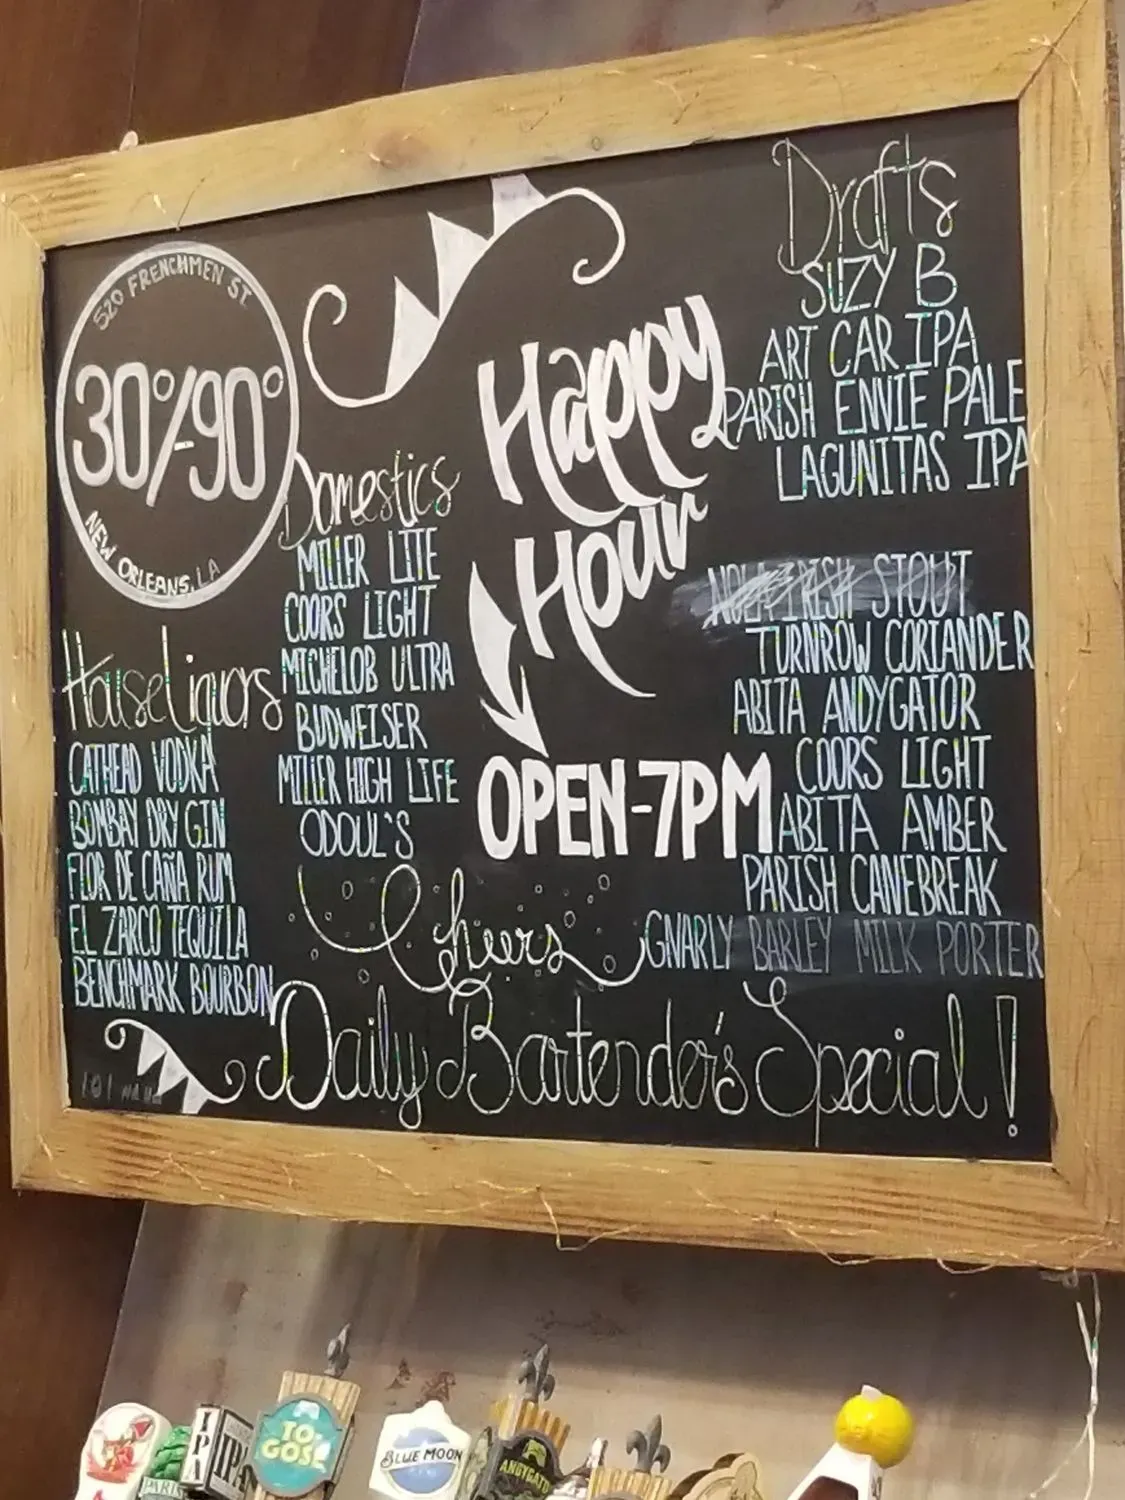 520 FRENCHMEN ST.
30°/-90°
NEW ORLEANS, LA
House Liquors
CATHEAD VODKA
BOMBAY DRY GIN
FLOR DE CAÑA RUM
EL ZARCO TEQUILA
BENCHMARK BOURBON
Domestics
MILLER LITE
COORS LIGHT
MICHELOB ULTRA
BUDWEISER
MILLER HIGH LIFE
ODOUL'S
Happy
Hour
OPEN-7PM
Cheers
Drafts
SUZY B
ART CAR IPA
PARISH ENVIE PALE
LAGUNITAS IPA
NOLA IRISH STOUT
TURNROW CORIANDER
ABITA ANDYGATOR
COORS LIGHT
ABITA AMBER
PARISH CANEBREAK
GNARLY BARLEY MILK PORTER
Daily Bartender's Special!
IPA
IPA
PARIS
TO
GOSE
BLUE MOON
ANDYGATO